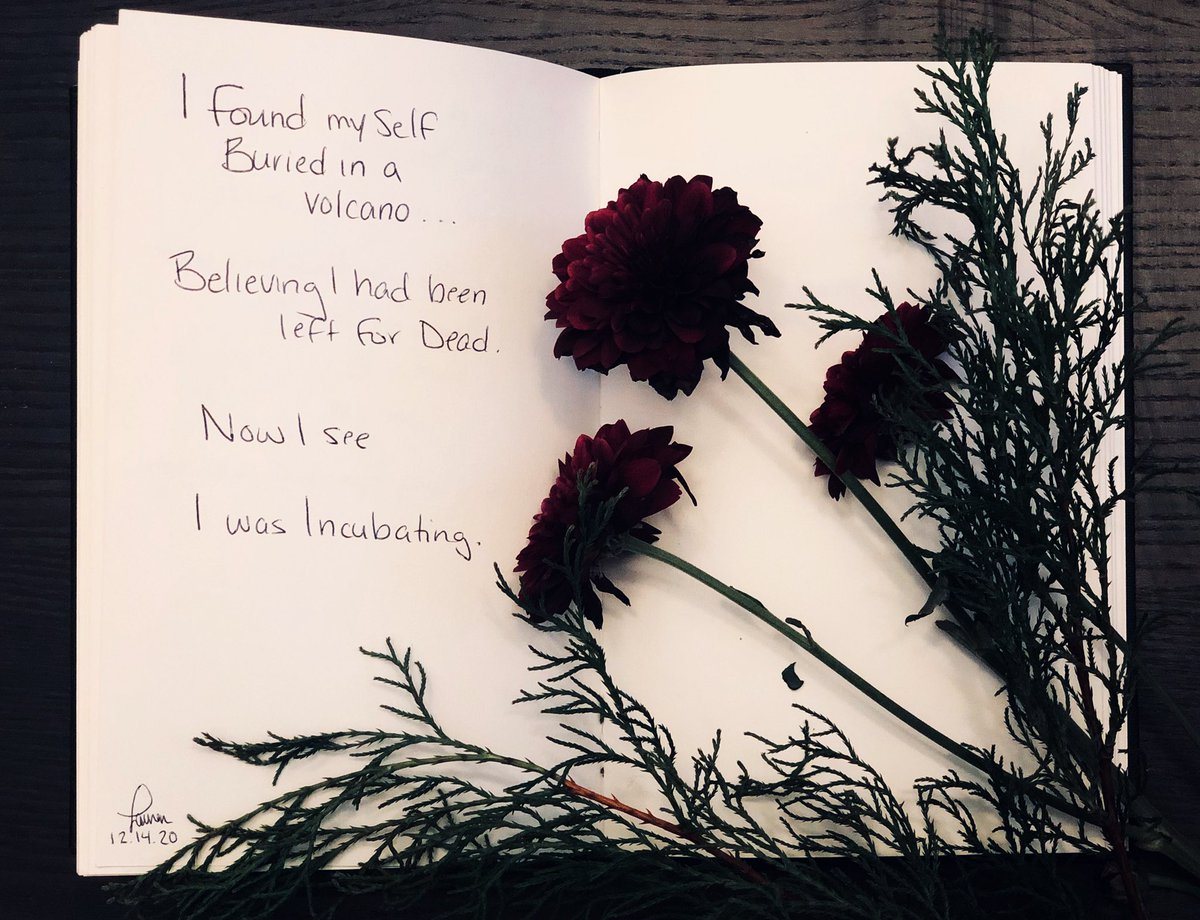 I Found my Self
Buried in a
volcano...
Believing I had been
left For Dead.
Now I see
I was Incubating.
Lauren
12.14.20